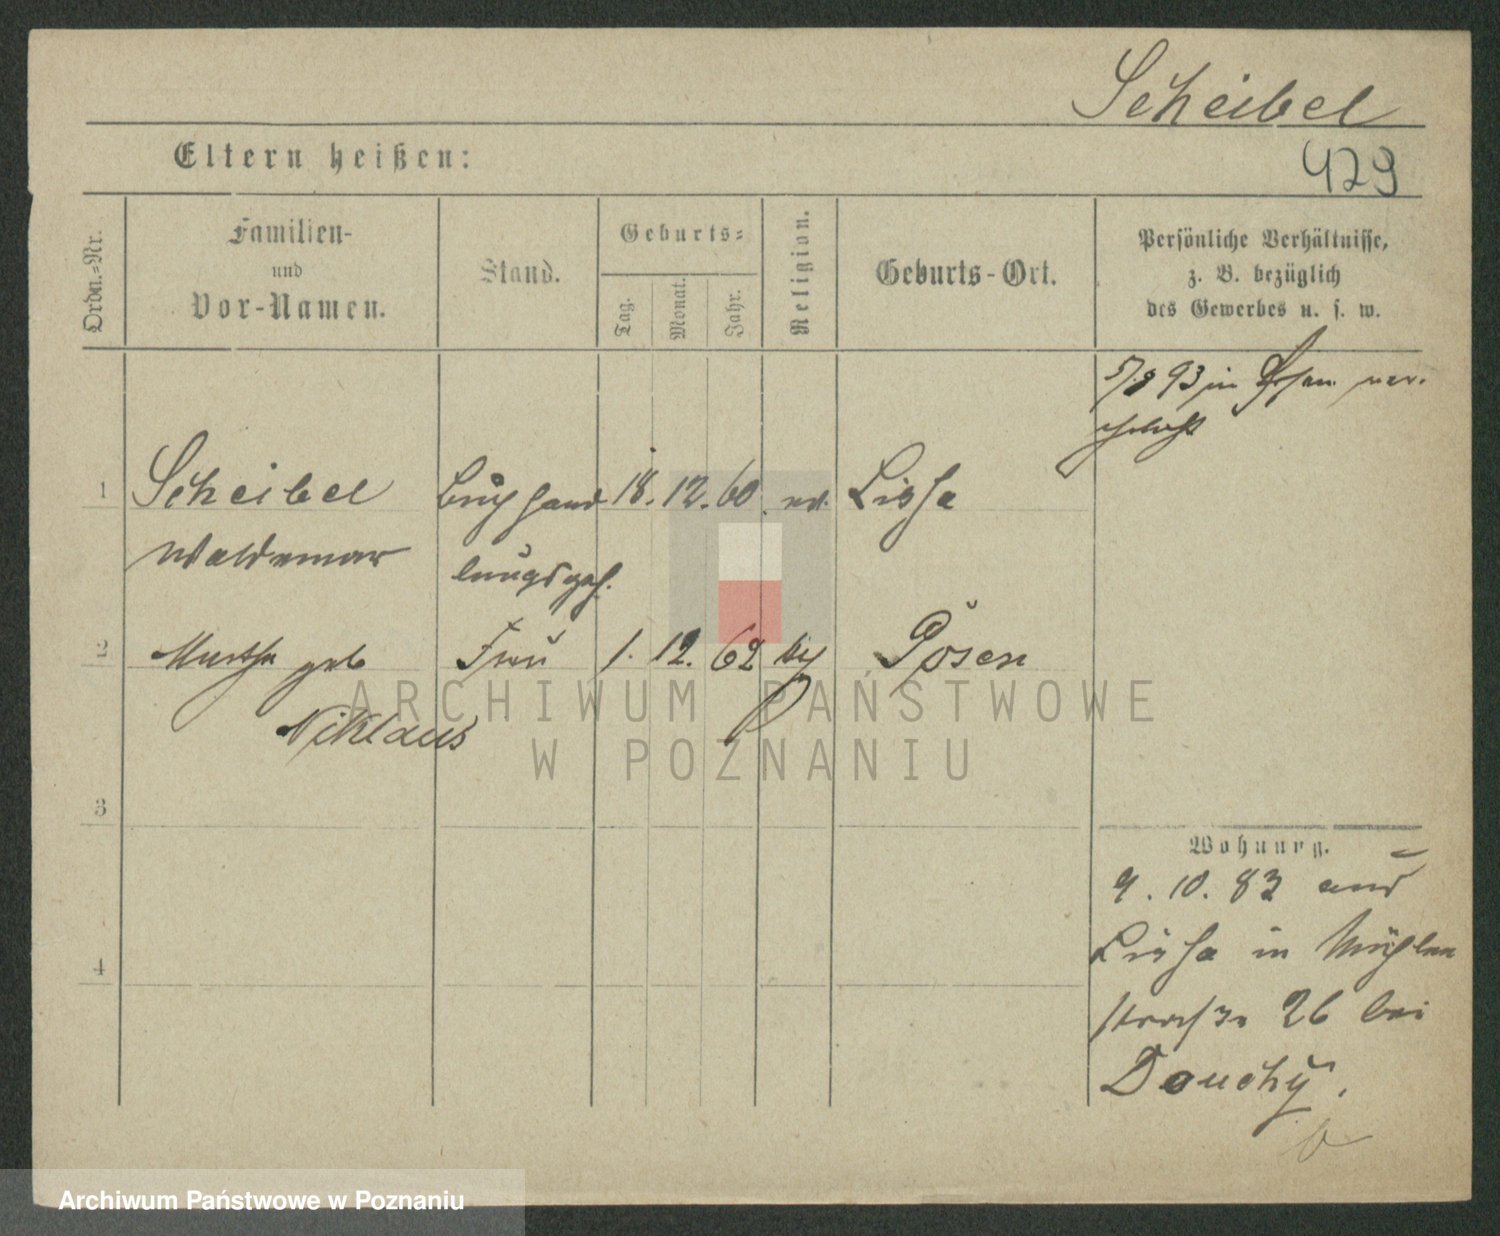 Scheibel
Eltern heißen:
429
Ordn.=Nr.
Familien-
und
Vor-Namen.
Stand.
Geburts=
Tag.
Monat.
Jahr.
Religion.
Geburts-Ort.
Persönliche Verhältnisse,
z. B. bezüglich
des Gewerbes u. s. w.
93 in Posen ver-
ehelicht
1 Scheibel Buchhand 18. 12. 60 ev. Lissa
Waldemar
lungsgeh.
2 Martha geb Frau 1. 12. 62 Posen
Niklaus
ARCHIWUM PAŃSTWOWE
W POZNANIU
3
Wohnung.
9. 10. 83 aus
Lissa in Mühlen
straße 26 bei
Douchy.
4
Archiwum Państwowe w Poznaniu